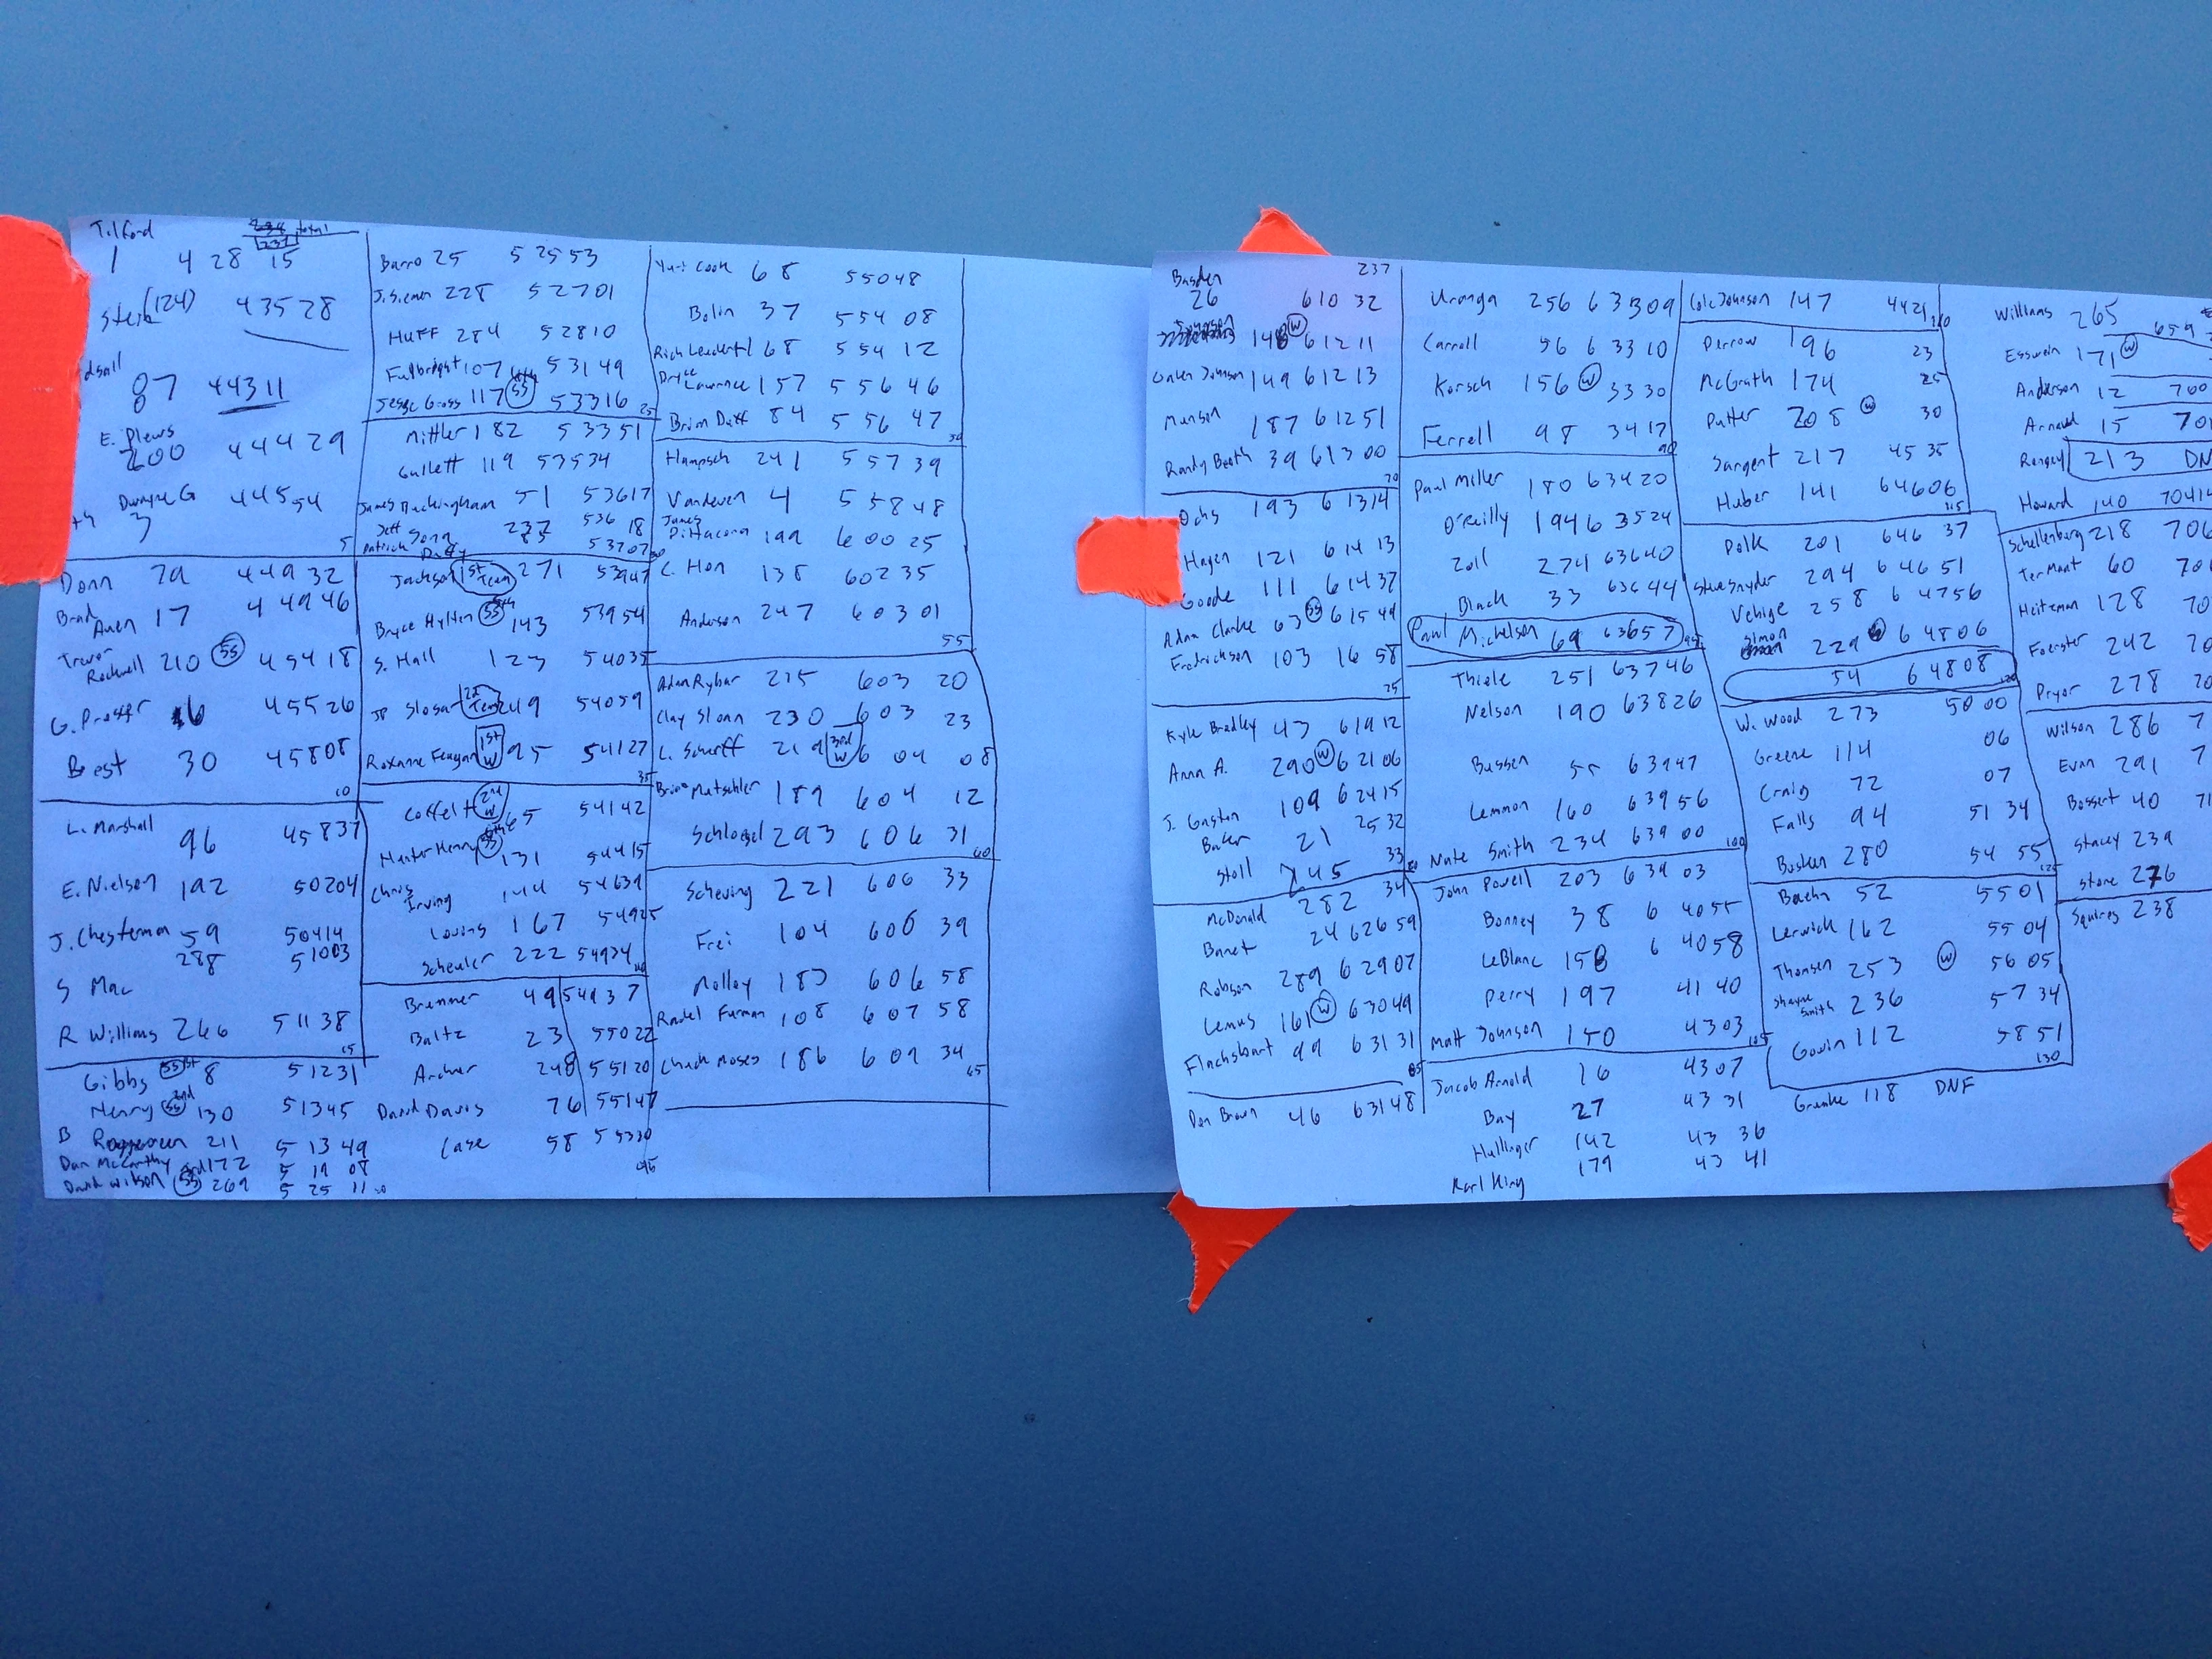 Tilford total
237
1 4 28 15
Stein (124) 43528
dsall
87 44311
E. Plews
200 44429
Dwayne G 44554
3
5
Donn 79 44932
Brad
Auen 17 44946
Trevor
Rockwell 210 SS 45418
G. Prosser 6 45526
Best 30 45808
10
L. Marshall
96 45837
E. Nielson 192 50204
J. Chesterman 59 50414
288 51003
S Mac
R Williams 266 51138
15
Gibbs SS 1st 8 51231
Henry SS 2nd 130 51345
B 211 5 13 49
Dan McCarthy 172 5 19 08
David Wilson SS 3rd 269 5 25 11 20
Barro 25 52553
J. Siemen 228 52701
Huff 284 52810
Fulbright 107 53149
Jesse Gross 117 SS 4th 53316 25
Mittler 182 53351
Gullett 119 53534
James Buckingham 51 53617
Jeff Song 237 536 18
Patrick Duffy 85 53707 30
Jackson 1st Team 271 53947
Bryce Hylten SS 5th 143 53954
S. Hall 123 54035
JP Slosar 2d Team 249 54059
Roxanne Feagan 1st W 95 54127
35
Coffelt 2nd W 65 54142
Hunter Henry SS 6th 131 54415
Chris
Irving 144 54639
Loving 167 54925
Scheuler 222 54934 40
Brenner 49 54937
Baltz 23 55022
Archer 248 55120
David Davis 76 55147
Case 58 55330
45
Yuri Cook 68 55048
Bolin 37 554 08
Rich Leadertl 68 554 12
Bryce
Lawrence 157 556 46
Brian Datt 84 556 47
50
Hampsch 241 557 39
Vandeven 4 558 48
James
Dittacora 199 600 25
C. Hon 138 602 35
Anderson 247 603 01
55
Adam Rybar 215 603 20
Clay Sloan 230 603 23
L. Scherff 219 3rd W 6 04 08
Brian Matschler 189 604 12
Schloegel 293 606 31
60
Scheving 221 606 33
Frei 104 606 39
Molloy 183 606 58
Randel Furman 108 607 58
Chuck Moses 186 609 34
65
Basden 237
26 610 32
148 W 61211
Galen Johnson 149 61213
Munson 187 61251
Randy Booth 39 61300
70
Ochs 193 61314
Hagen 121 61413
Goode 111 61437
Adam Clarke 63 SS 61544
Fredrickson 103 16 58
75
Kyle Bradley 43 61912
Anna A. 290 W 62106
J. Gaston 109 62415
Baker 21 2532
Stoll 245 33
80
McDonald 282 34
Banet 24 62659
Robson 289 62907
Lemus 161 W 63049
Flachsbart 99 63131
85
Dan Brown 46 63148
Uranga 256 63309
Carroll 56 63310
Korsch 156 W 3330
Ferrell 98 3417
90
Paul Miller 180 63420
O'Reilly 194 63524
Zoll 274 63640
Black 33 63644
Paul Michelson 69 63657 95
Thiele 251 63746
Nelson 190 63826
Bussen 55 63947
Lemmon 160 63956
Nate Smith 234 63900 100
John Powell 203 639 03
Bonney 38 6 4055
LeBlanc 158 6 4058
Perry 197 41 40
Matt Johnson 150 4303
105
Jacob Arnold 16 4307
Bay 27 43 31
Hullinger 142 43 36
Karl King 179 43 41
Cole Johnson 147 4421
110
Perrow 196 23
McGrath 174 25
Putter 208 W 30
Sargent 217 45 35
Huber 141 64606
115
Polk 201 646 37
Steve Snyder 294 64651
Vehige 258 64756
Simon 229 64806
54 64808
120
W. Wood 273 5000
Greene 114 06
Craig 72 07
Falls 94 51 34
Busken 280 54 55
125
Baehn 52 5501
Lerwick 162 5504
Thomsen 253 W 5605
Shayne
Smith 236 57 34
Govin 112 5851
130
Grunke 118 DNF
Williams 265 659
Esswein 171 W
Anderson 12 700
Arnold 15 70
Rengey 213 DN
Howard 140 7041
Schellenburg 218 706
TerMaat 60 70
Heitzman 128 70
Foerster 242 70
Pryor 278 70
Wilson 286 7
Evan 291 7
Bossert 40 71
Stacey 239
Stone 276
Squires 238